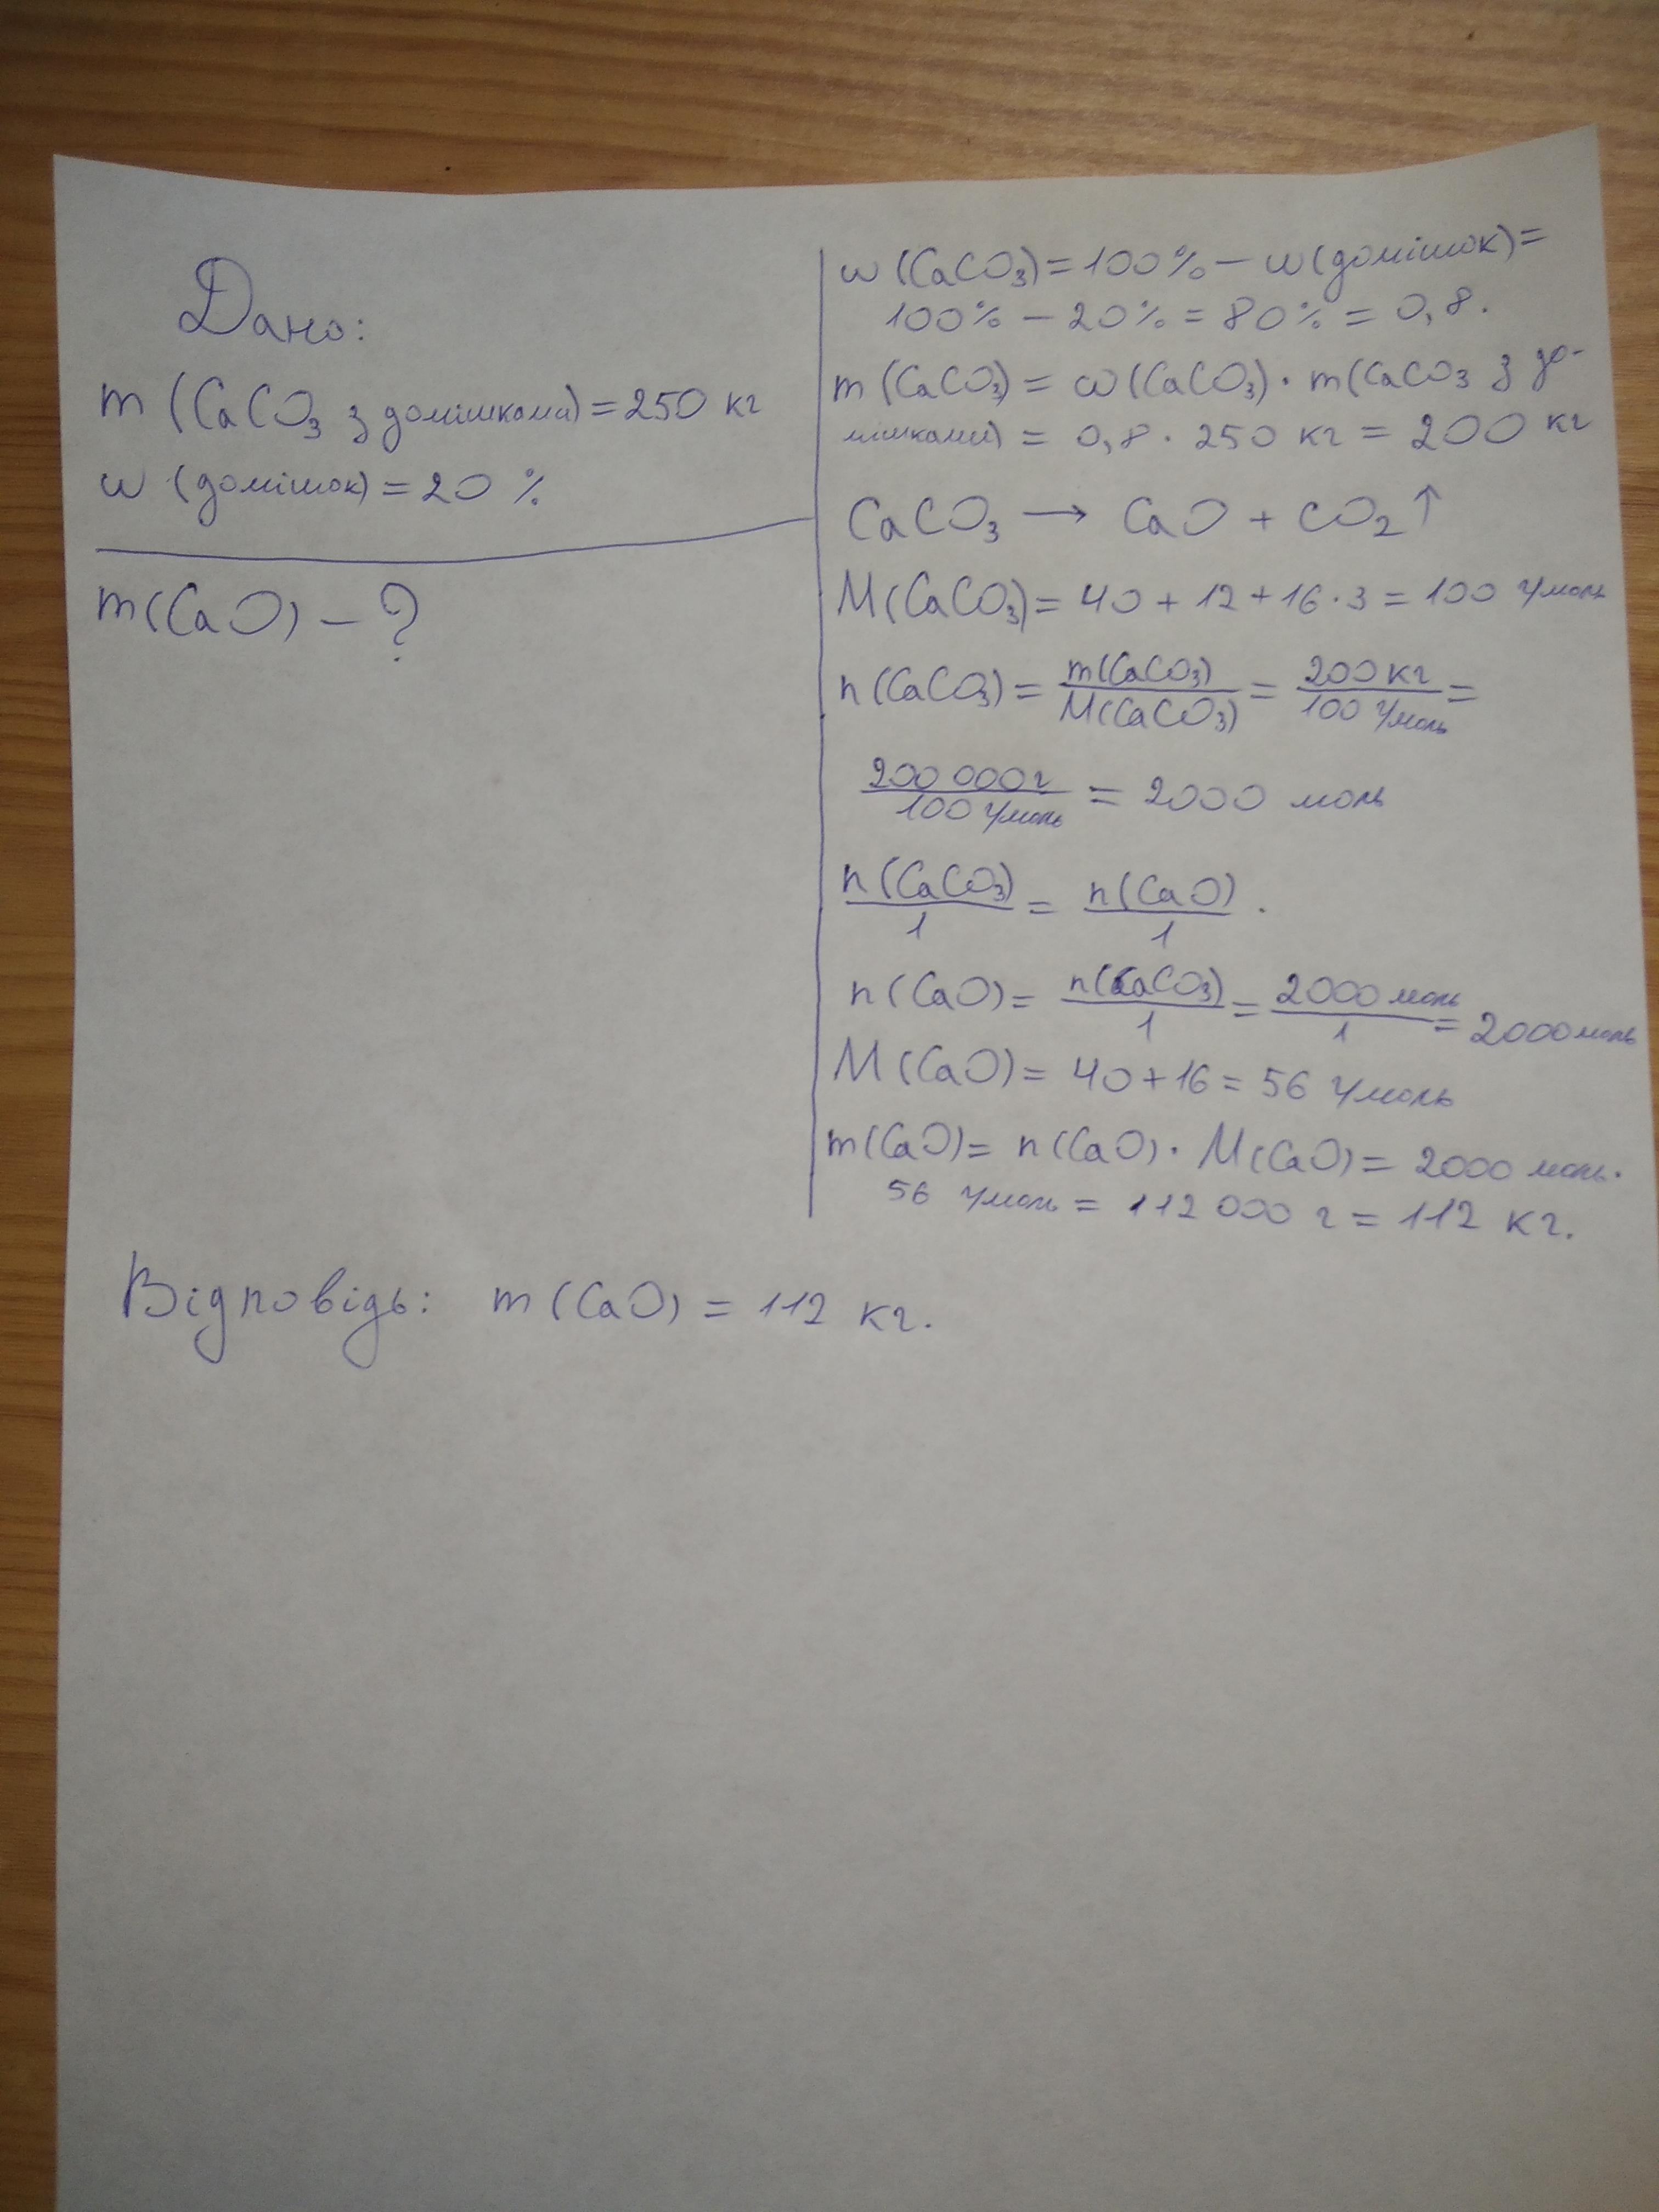 Дано:
m (CaCO₃ з домішками) = 250 кг
w (домішок) = 20 %
m(CaO) – ?
w (CaCO₃) = 100% – w (домішок) =
100% – 20% = 80% = 0,8.
m (CaCO₃) = w (CaCO₃) · m(CaCO₃ з до-
мішками) = 0,8 · 250 кг = 200 кг
CaCO₃ → CaO + CO₂ ↑
M(CaCO₃) = 40 + 12 + 16 · 3 = 100 г/моль
n (CaCO₃) = m(CaCO₃) / M(CaCO₃) = 200 кг / 100 г/моль =
200 000 г / 100 г/моль = 2000 моль
n (CaCO₃) / 1 = n (CaO) / 1 .
n (CaO) = n(CaCO₃) / 1 = 2000 моль / 1 = 2000 моль
M (CaO) = 40 + 16 = 56 г/моль
m(CaO) = n (CaO) · M(CaO) = 2000 моль ·
56 г/моль = 112 000 г = 112 кг.
Відповідь: m (CaO) = 112 кг.